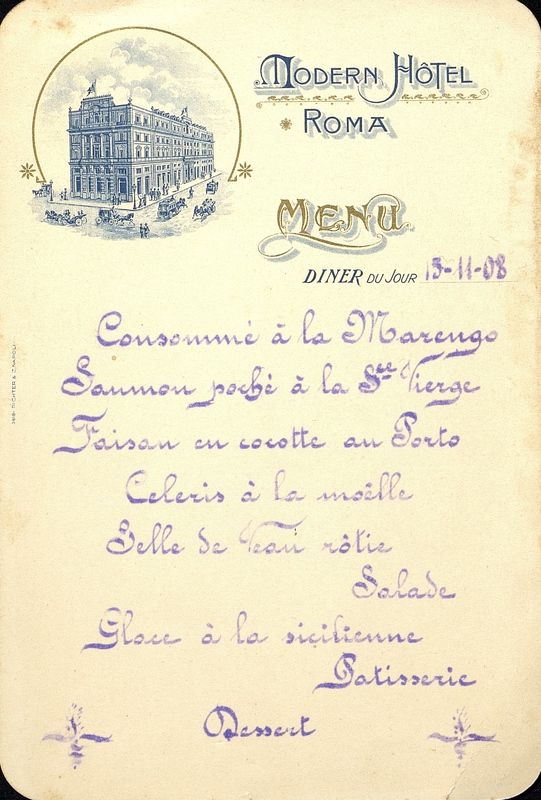 MODERN HÔTEL
ROMA
MENU
DINER DU JOUR 13-11-08
Consommé à la Marengo
Saumon poché à la Ste Vierge
Faisan en cocotte au Porto
Celeris à la moëlle
Selle de Veau rôtie
Salade
Glace à la sicilienne
Patisserie
Dessert
RICHTER & C. NAPOLI